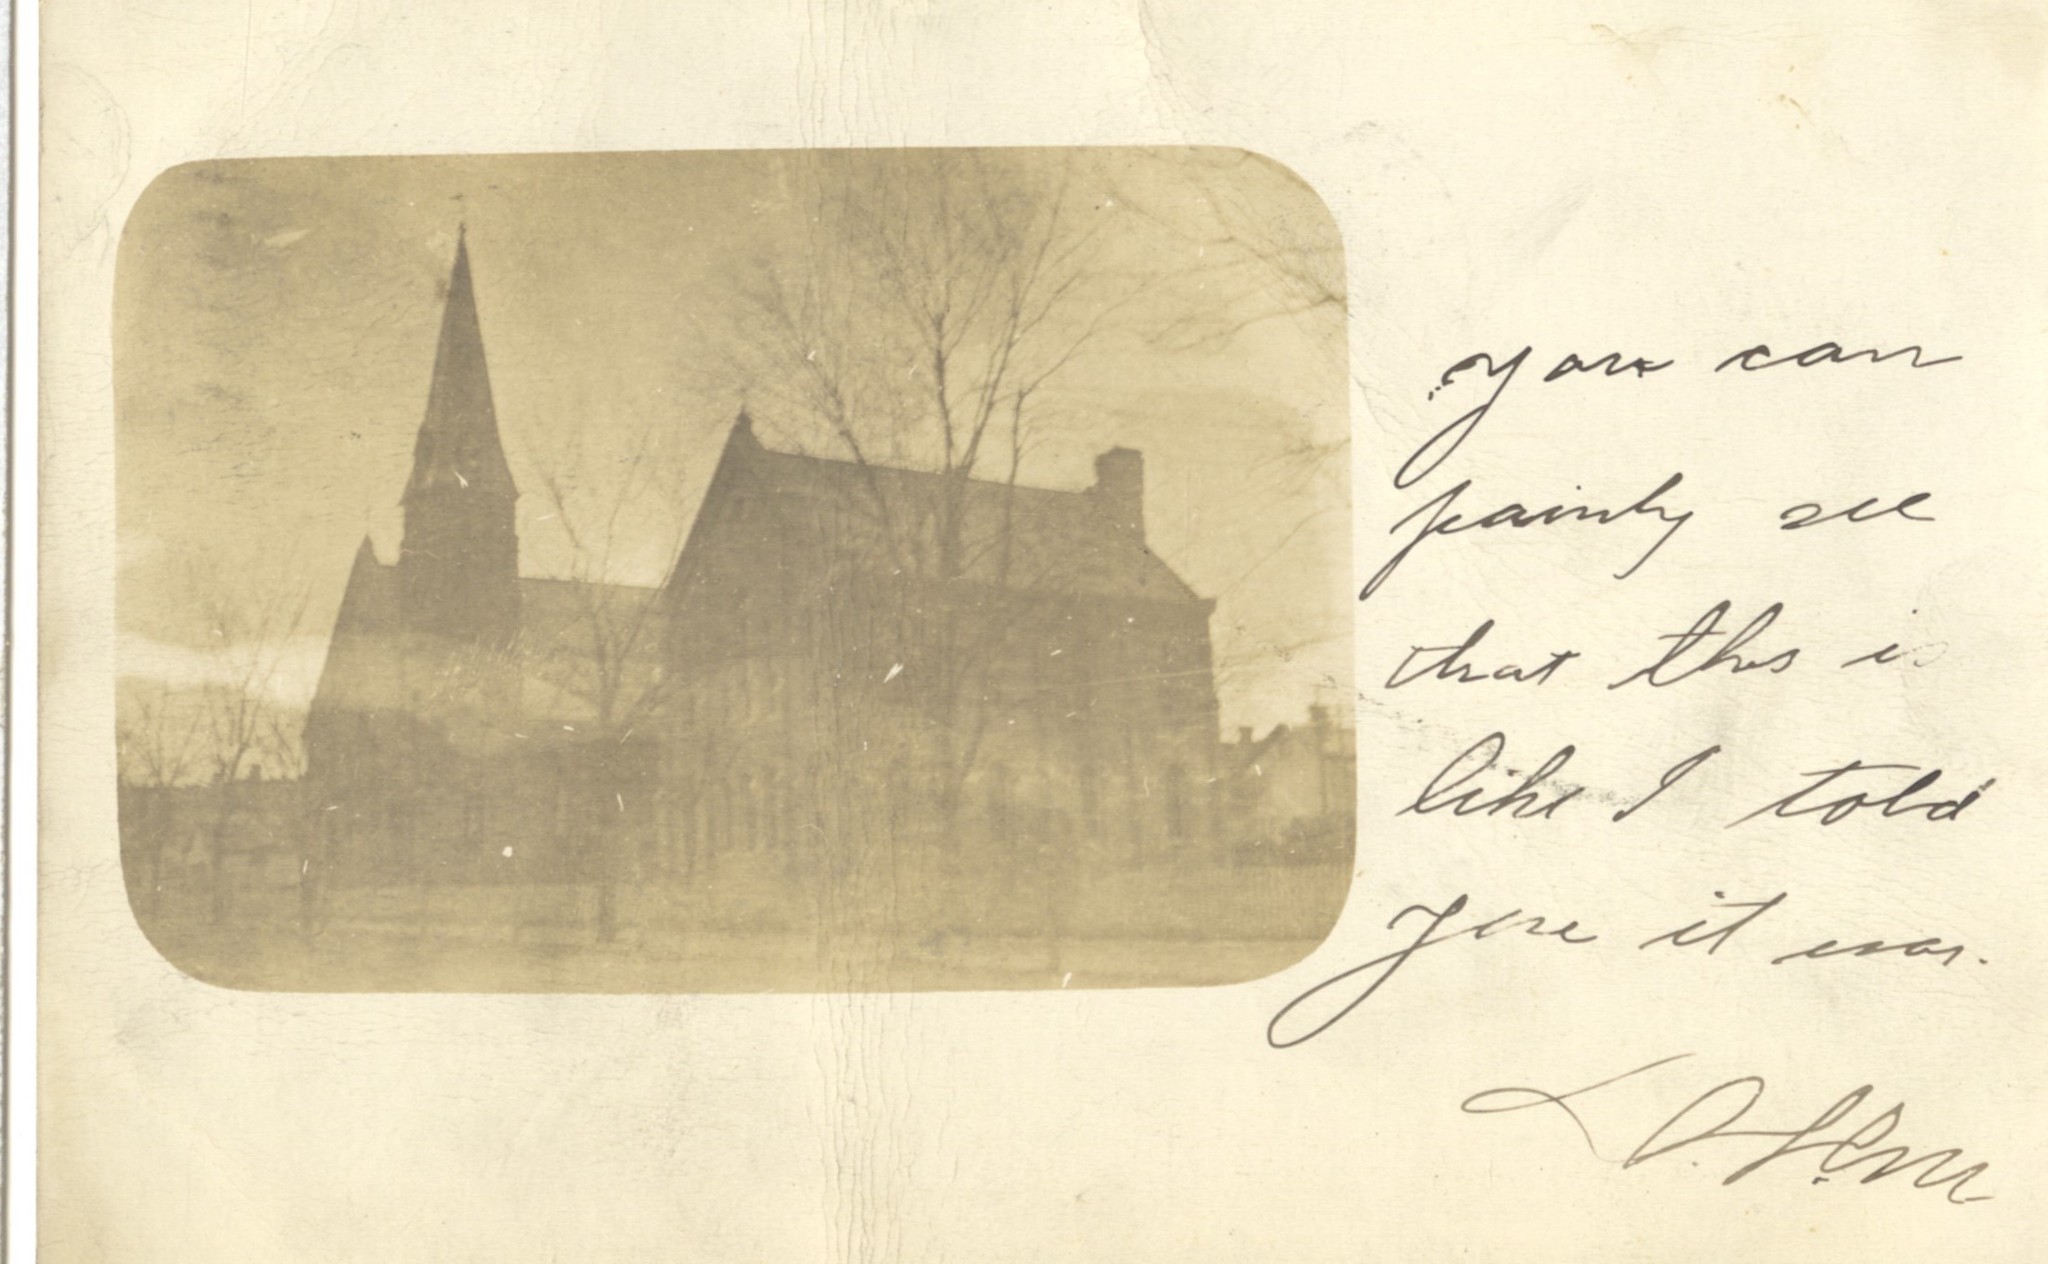 You can
painly see
that this is
like I told
you it was.